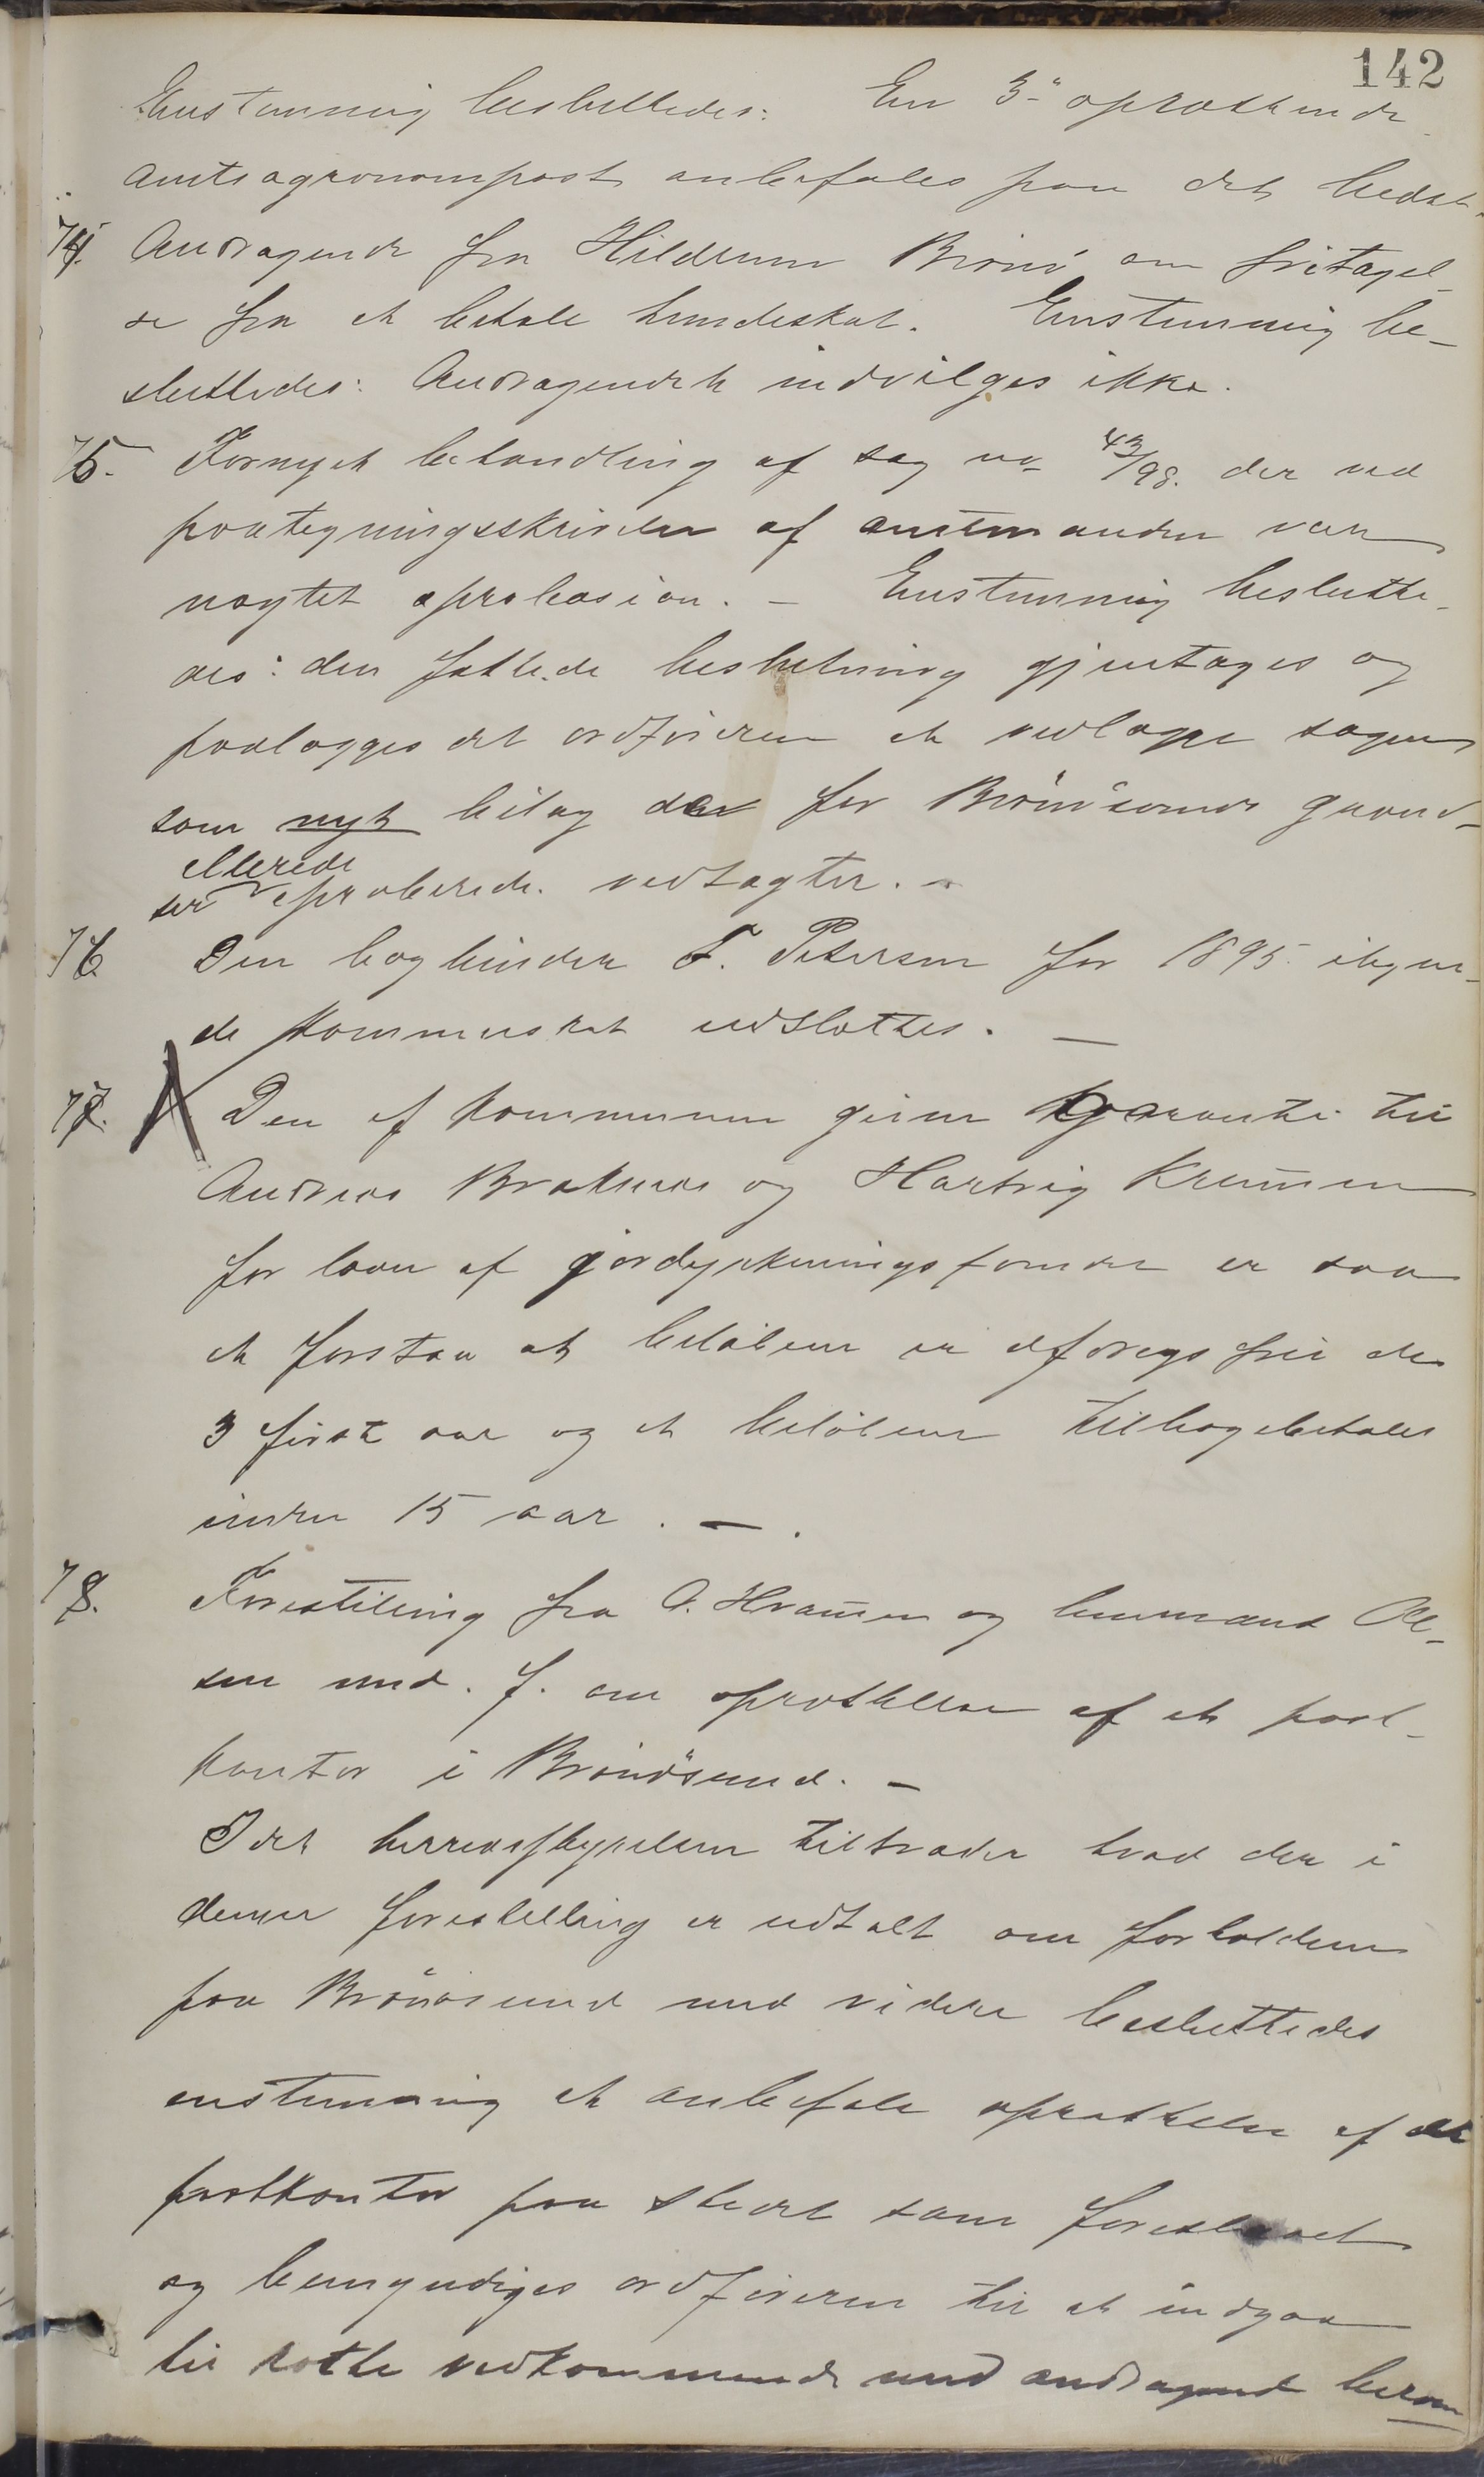 142
Enstemmig besluttedes: En 3die oprættende
amtsagronompost anbefales paa det bedste.
74. Andragende fra Hildrum Brønø om fritagel-
se fra at betale hundeskat. Enstemmig be-
sluttedes: Andragendet indvilges ikke.
75. Fornyet behandling af sag no 43/98. der ved
paategningsskrivelse af amtmanden var
nægtet aprobasion. – Enstemmig beslutte-
des: den fattede beslutning gjentages og
paalægges det ordføreren at vedlægge sagen
som nyt bilag de for Brønøsunds
allerede
aproberede vedtægter. –
76 Den bogbinder F. Petersen for 1895 ilign-
de kommuneskat udslettes. –
77. Den af kommunen givne garanti til
Andreas Braknes og Hartvig
for laan af jordyrkningsfondet er saa
at forstaa at beløbene er afdragsfrie de
3 første aar og at beløbene tilbagebetales
inden 15 aar. –.
78. Forestilling fra O. og lensmand Ol-
sen med. f. om oprettelse af et post-
kontor i Brønøsund. –
Idet herredsstyrelsen tiltræder hvad der i
denne forestilling er udtalt om forholdene
paa Brønøsund med videre besluttedes
enstemmig at anbefale oprettelse af et
postkontor paa stedet som foreslaaet
og bemyndiges ordføreren til at indgaa
til rette vedkommende med andragende herom